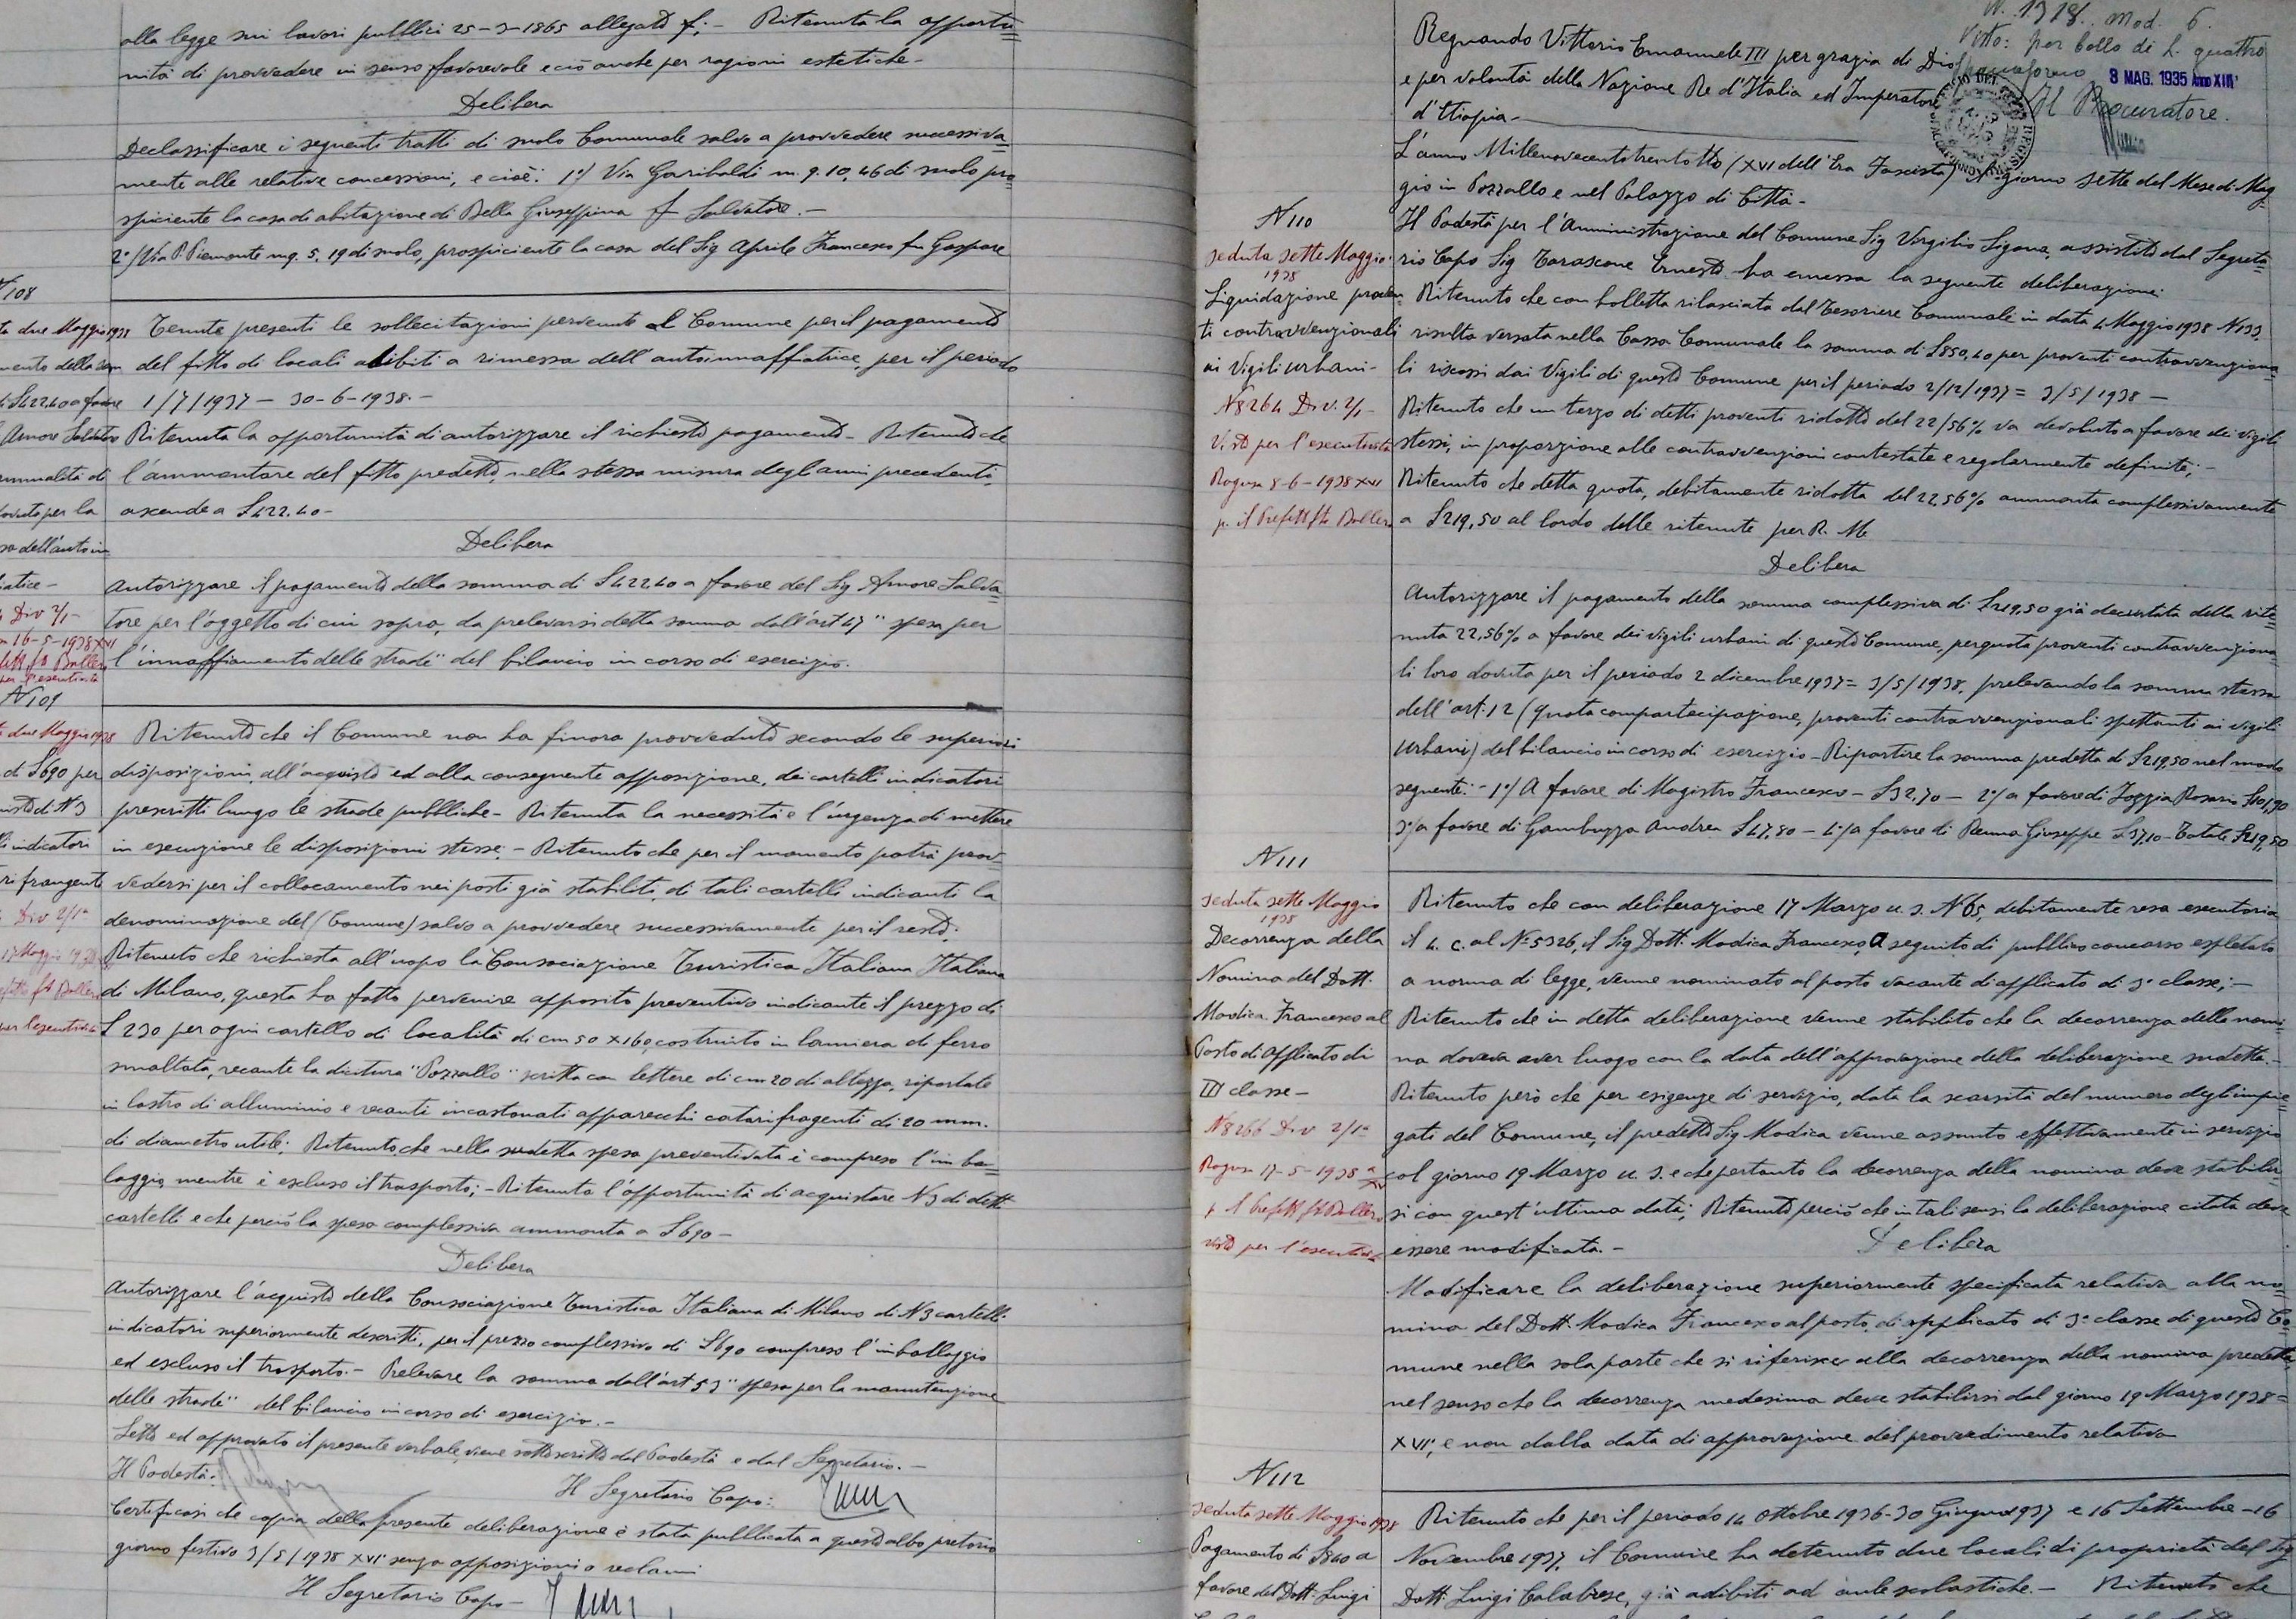 alla legge sui lavori pubblici 25-3-1865 allegato f; - Ritenuta la opportu=
nità di provvedere in senso favorevole e ciò anche per ragioni estetiche -
Delibera
Declassificare i seguenti tratti di suolo Comunale salvo a provvedere successiva=
mente alle relative concessioni, e cioè: 1°/ Via Garibaldi m.q. 10,46 di suolo pro=
spiciente la casa di abitazione di Bella Giuseppina f Salvatore. -
2°/ Via P. Piemonte mq. 5,19 di suolo, prospiciente la casa del Sig Aprile Francesco fu Gaspare
N 108
ta due Maggio 1938
di £422.40 a favore
Amore Salvatore
annualità di
dovuta per la
sa dell'autoin
iatice -
Div 2/1 -
16-5-1938 XVI
per l'esecutività
Tenute presenti le sollecitazioni pervenute al Comune per il pagamento
del fitto di locali adibiti a rimessa dell'autoinnaffiatrice, per il periodo
1/7/1937 - 30-6-1938. -
Ritenuta la opportunità di autorizzare il richiesto pagamento - Ritenuto che
l'ammontare del fitto predetto, nella stessa misura degli anni precedenti,
ascende a £422.40 -
Delibera
Autorizzare il pagamento della somma di £422.40 a favore del Sig Amore Salva=
tore per l'oggetto di cui sopra, da prelevarsi detta somma dall'art 47 "spesa per
l'innaffiamento delle strade" del bilancio in corso di esercizio.
N 109
due Maggio 1938
di £690 per
isto di N 3
li indicatori
rifrangente
Div 2/1a
17 Maggio 1938
per l'esecutività
Ritenuto che il Comune non ha finora provveduto secondo le superiori
disposizioni, all'acquisto ed alla conseguente apposizione, dei cartelli indicatori
prescritti lungo le strade pubbliche - Ritenuta la necessità e l'urgenza di mettere
in esecuzione le disposizioni stesse; - Ritenuto che per il momento potrà prov=
vedersi per il collocamento nei posti già stabiliti, di tali cartelli indicanti la
denominazione del (Comune) salvo a provvedere successivamente per il resto;
Ritenuto che richiesta all'uopo la Consociazione Turistica Italiana Italiana
di Milano, questa ha fatto pervenire apposito preventivo indicante il prezzo di
£ 230 per ogni cartello di località di cm 50 x 160, costruito in lamiera di ferro
smaltata, recante la dicitura "Pozzallo" scritta con lettere di cm 20 di altezza, riportate
in lastra di alluminio e recanti incastonati apparecchi catarifragenti di 20 mm.
di diametro utile; Ritenuto che nella sudetta spesa preventivata è compreso l'imbal=
laggio, mentre è escluso il trasporto; - Ritenuta l'opportunità di acquistare N 3 di detti
cartelli e che perciò la spesa complessiva ammonta a £690 -
Delibera
Autorizzare l'acquisto della Consociazione Turistica Italiana di Milano di N 3 cartelli
indicatori superiormente descritti, per il prezzo complessivo di £690 compreso l'imballaggio
ed escluso il trasporto. - Prelevare la somma dall'art 53 "spesa per la manutenzione
delle strade" del bilancio in corso di esercizio. -
Letto ed approvato il presente verbale, viene sottoscritto dal Podestà e dal Segretario. -
Il Podestà:
Il Segretario Capo:
Certificasi che copia della presente deliberazione è stata pubblicata a questo albo pretorio
giorno festivo 3/5/1938 XVI senza opposizioni o reclami
Il Segretario Capo -
N. 1318. mod. 6.
Visto: per bollo di L. quattro
8 MAG. 1935 Anno XIII
Il Procuratore.
Regnando Vittorio Emanuele III per grazia di Dio
e per volontà della Nazione Re d'Italia ed Imperatore
d'Etiopia -
L'anno Millenovecentotrentotto (XVI dell'Era Fascista) il giorno sette del Mese di Mag=
gio in Pozzallo e nel Palazzo di Città -
N 110
seduta sette Maggio
1938
Liquidazione proven
ti contravvenzionali
ai Vigili urbani -
N 8264 Div. 2/1 -
Visto per l'esecutività
Ragusa 8-6-1938 XVI
p. il Prefetto
Il Podestà per l'Amministrazione del Comune Sig Virgilio Sigona, assistito dal Segreta=
rio Capo Sig Tarascone Ernesto ha emessa la seguente deliberazione:
Ritenuto che con bolletta rilasciata dal Tesoriere Comunale in data 4 Maggio 1938 N 133,
risulta versata nella Cassa Comunale la somma di £850,40 per proventi contravvenziona=
li riscossi dai Vigili di questo Comune per il periodo 2/12/1937 = 3/5/1938 -
Ritenuto che un terzo di detti proventi ridotto del 22/56% va devoluto a favore dei vigili
stessi, in proporzione alle contravvenzioni contestate e regolarmente definite; -
Ritenuto che detta quota, debitamente ridotta del 22,56% ammonta complessivamente
a £219,50 al lordo delle ritenute per R. M.
Delibera
Autorizzare il pagamento della somma complessiva di £219,50 già decurtata della rite=
nuta 22,56% a favore dei vigili urbani di questo Comune, per quota proventi contravvenziona=
li loro dovuta per il periodo 2 dicembre 1937 = 3/5/1938, prelevando la somma stessa
dell'art. 12 (quota compartecipazione, proventi contravvenzionali spettanti ai vigili
urbani) del bilancio in corso di esercizio - Ripartire la somma predetta di £219,50 nel modo
seguente: - 1°/ A favore di Magistro Francesco - £32,70 - 2°/ a favore di Iozzia Rosario £101,90
3°/ a favore di Gambuzza Andrea £47,80 - 4°/ a favore di Renna Giuseppe £37,10 - Totale £219,50
N 111
seduta sette Maggio
1938
Decorrenza della
Nomina del Dott.
Modica Francesco al
Posto di Applicato di
III classe -
N 8266 Div 2/1a
Ragusa 17-5-1938
visto per l'esecutività
Ritenuto che con deliberazione 17 Marzo u. s. N 65, debitamente resa esecutoria
il 4. c. al N° 5326, il Sig Dott. Modica Francesco, a seguito di pubblico concorso espletato
a norma di legge, venne nominato al posto vacante di applicato di 3° classe; -
Ritenuto che in detta deliberazione venne stabilito che la decorrenza della nomi
na doveva aver luogo con la data dell'approvazione della deliberazione sudetta. -
Ritenuto però che per esigenze di servizio, data la scarsità del numero degli impie=
gati del Comune, il predetto Sig Modica venne assunto effettivamente in servizio
col giorno 19 Marzo u. s. e che pertanto la decorrenza della nomina deve stabilir
si con quest'ultima data; Ritenuto perciò che in tali sensi la deliberazione citata deve
essere modificata. -
Delibera
Modificare la deliberazione superiormente specificata relativa alla no=
mina del Dott. Modica Francesco al posto di applicato di 3° classe di questo Co=
mune nella sola parte che si riferisce alla decorrenza della nomina predetta,
nel senso che la decorrenza medesima deve stabilirsi dal giorno 19 Marzo 1938=
XVI, e non dalla data di approvazione del provvedimento relativo
N 112
seduta sette Maggio 1938
Pagamento di £840 a
favore del Dott. Luigi
Ritenuto che per il periodo 14 Ottobre 1936-30 Giugno 1937 e 16 Settembre -16
Novembre 1937, il Comune ha detenuto due locali di proprietà del Sig
Dott. Luigi Calabrese, già adibiti ad aule scolastiche. - Ritenuto che